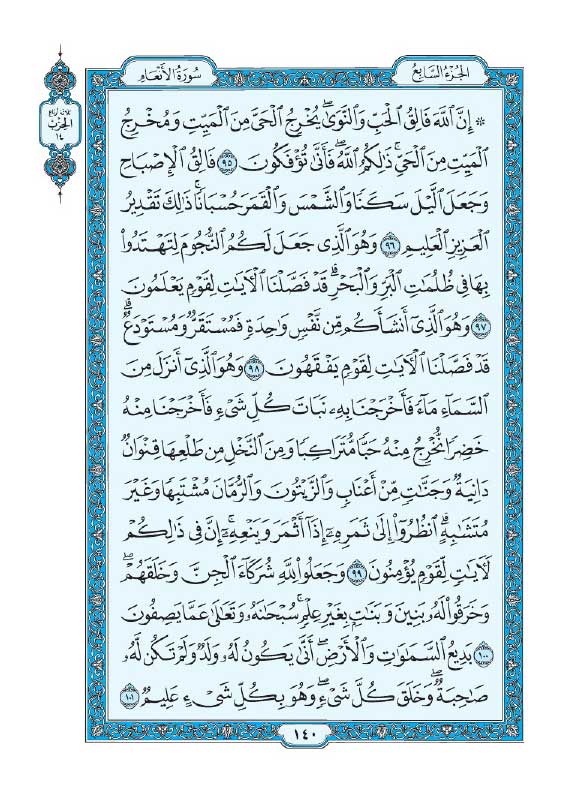 الجزء السابع
سورة الأنعام
ثلاثة أرباع
الحزب
١٤
۞ إِنَّ ٱللَّهَ فَالِقُ ٱلْحَبِّ وَٱلنَّوَىٰ ۖ يُخْرِجُ ٱلْحَىَّ مِنَ ٱلْمَيِّتِ وَمُخْرِجُ
ٱلْمَيِّتِ مِنَ ٱلْحَىِّ ۚ ذَٰلِكُمُ ٱللَّهُ ۖ فَأَنَّىٰ تُؤْفَكُونَ ٩٥ فَالِقُ ٱلْإِصْبَاحِ
وَجَعَلَ ٱلَّيْلَ سَكَنًا وَٱلشَّمْسَ وَٱلْقَمَرَ حُسْبَانًا ۚ ذَٰلِكَ تَقْدِيرُ
ٱلْعَزِيزِ ٱلْعَلِيمِ ٩٦ وَهُوَ ٱلَّذِى جَعَلَ لَكُمُ ٱلنُّجُومَ لِتَهْتَدُوا۟
بِهَا فِى ظُلُمَٰتِ ٱلْبَرِّ وَٱلْبَحْرِ ۗ قَدْ فَصَّلْنَا ٱلْـَٔايَٰتِ لِقَوْمٍ يَعْلَمُونَ
٩٧ وَهُوَ ٱلَّذِىٓ أَنشَأَكُم مِّن نَّفْسٍ وَٰحِدَةٍ فَمُسْتَقَرٌّ وَمُسْتَوْدَعٌ ۗ
قَدْ فَصَّلْنَا ٱلْـَٔايَٰتِ لِقَوْمٍ يَفْقَهُونَ ٩٨ وَهُوَ ٱلَّذِىٓ أَنزَلَ مِنَ
ٱلسَّمَآءِ مَآءً فَأَخْرَجْنَا بِهِۦ نَبَاتَ كُلِّ شَىْءٍ فَأَخْرَجْنَا مِنْهُ
خَضِرًا نُّخْرِجُ مِنْهُ حَبًّا مُّتَرَاكِبًا وَمِنَ ٱلنَّخْلِ مِن طَلْعِهَا قِنْوَانٌ
دَانِيَةٌ وَجَنَّٰتٍ مِّنْ أَعْنَابٍ وَٱلزَّيْتُونَ وَٱلرُّمَّانَ مُشْتَبِهًا وَغَيْرَ
مُتَشَٰبِهٍ ۗ ٱنظُرُوٓا۟ إِلَىٰ ثَمَرِهِۦٓ إِذَآ أَثْمَرَ وَيَنْعِهِۦٓ ۚ إِنَّ فِى ذَٰلِكُمْ
لَـَٔايَٰتٍ لِّقَوْمٍ يُؤْمِنُونَ ٩٩ وَجَعَلُوا۟ لِلَّهِ شُرَكَآءَ ٱلْجِنَّ وَخَلَقَهُمْ ۖ
وَخَرَقُوا۟ لَهُۥ بَنِينَ وَبَنَٰتٍۭ بِغَيْرِ عِلْمٍ ۚ سُبْحَٰنَهُۥ وَتَعَٰلَىٰ عَمَّا يَصِفُونَ
١٠٠ بَدِيعُ ٱلسَّمَٰوَٰتِ وَٱلْأَرْضِ ۖ أَنَّىٰ يَكُونُ لَهُۥ وَلَدٌ وَلَمْ تَكُن لَّهُۥ
صَٰحِبَةٌ ۖ وَخَلَقَ كُلَّ شَىْءٍ ۖ وَهُوَ بِكُلِّ شَىْءٍ عَلِيمٌ ١٠١
١٤٠